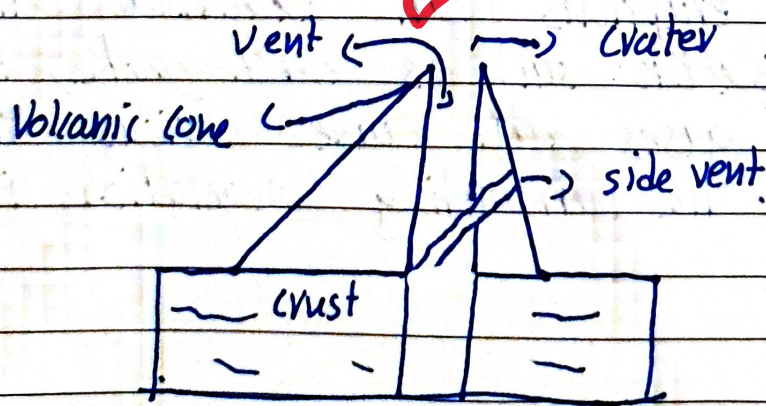 vent
crater
Volcanic cone
side vent
crust